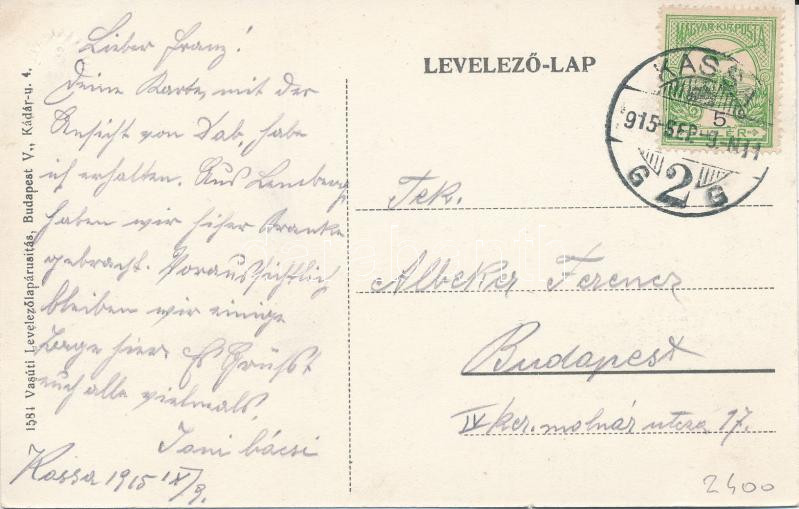 Lieber Franz!
Deine Karte, mit der
Ansicht von Dab, habe
ich erhalten. Aus Lemberg
haben wir hiher Kranke
gebracht. Voraussichtlich
bleiben wir einige
Tage hier. Es Grüßt
euch alle vielmals,
Jani bácsi
Kassa 1915 IX/9.
1584 Vasúti Levelezőlapárusitás, Budapest V., Kádár-u. 4.
LEVELEZŐ-LAP
MAGYAR KIR. POSTA
5
KASSA
915-SEP-9-N11
G 2 G
Tek.
Albeker Ferencz
Budapest
IV ker. molnár utcza 17.
2400